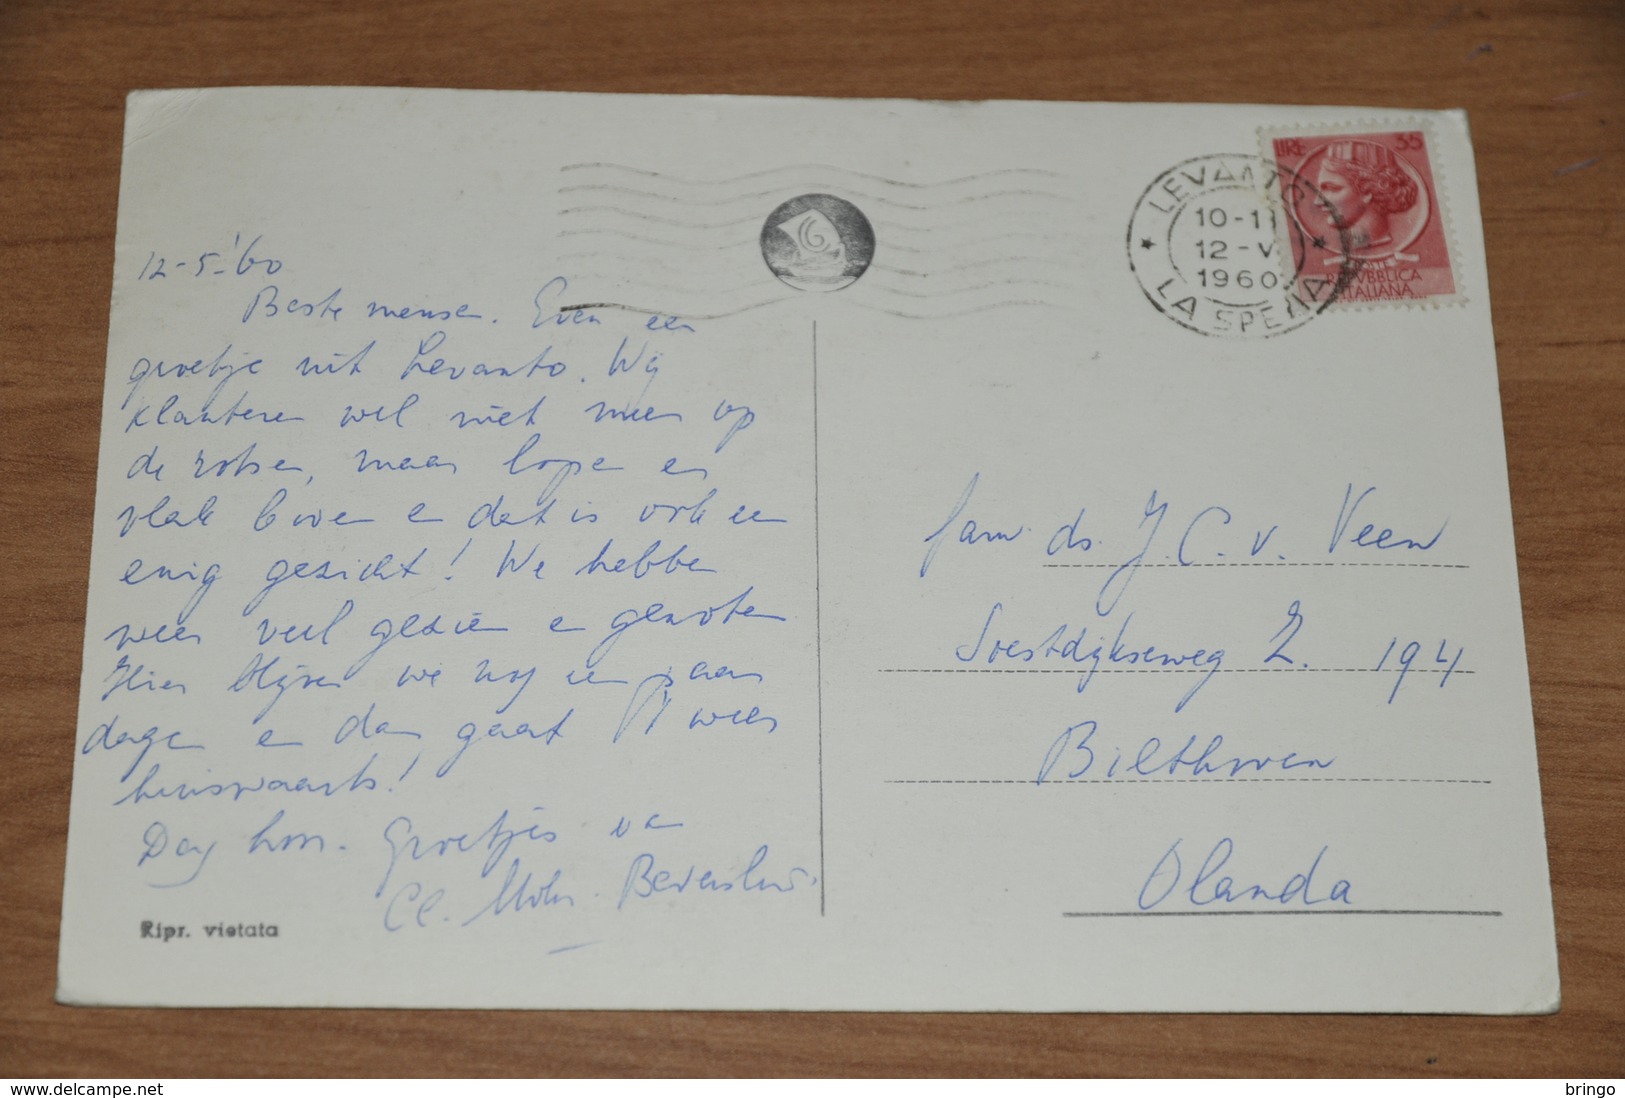 12-5-'60
Beste mensen. Even een
groetje uit Levanto. Wij
klauteren wel niet meer op
de rotsen, maar lopen en
vlak boven en dat is ook een
enig gezicht! We hebben
weer veel gezien en genoten
Hier blijven we nog een paar
dagen en dan gaat 't weer
huiswaarts!
Dag hoor. Groetjes van
Cl. Mohr. 
Ripr. vietata
LEVANTO
10-11
12-V
1960
LA SPEZIA
LIRE 35
POSTE
REPVBBLICA
ITALIANA
fam. ds. J. C. v. Veen
Soestdijkseweg Z. 194
Bilthoven
Olanda
delcampe.net
bringo